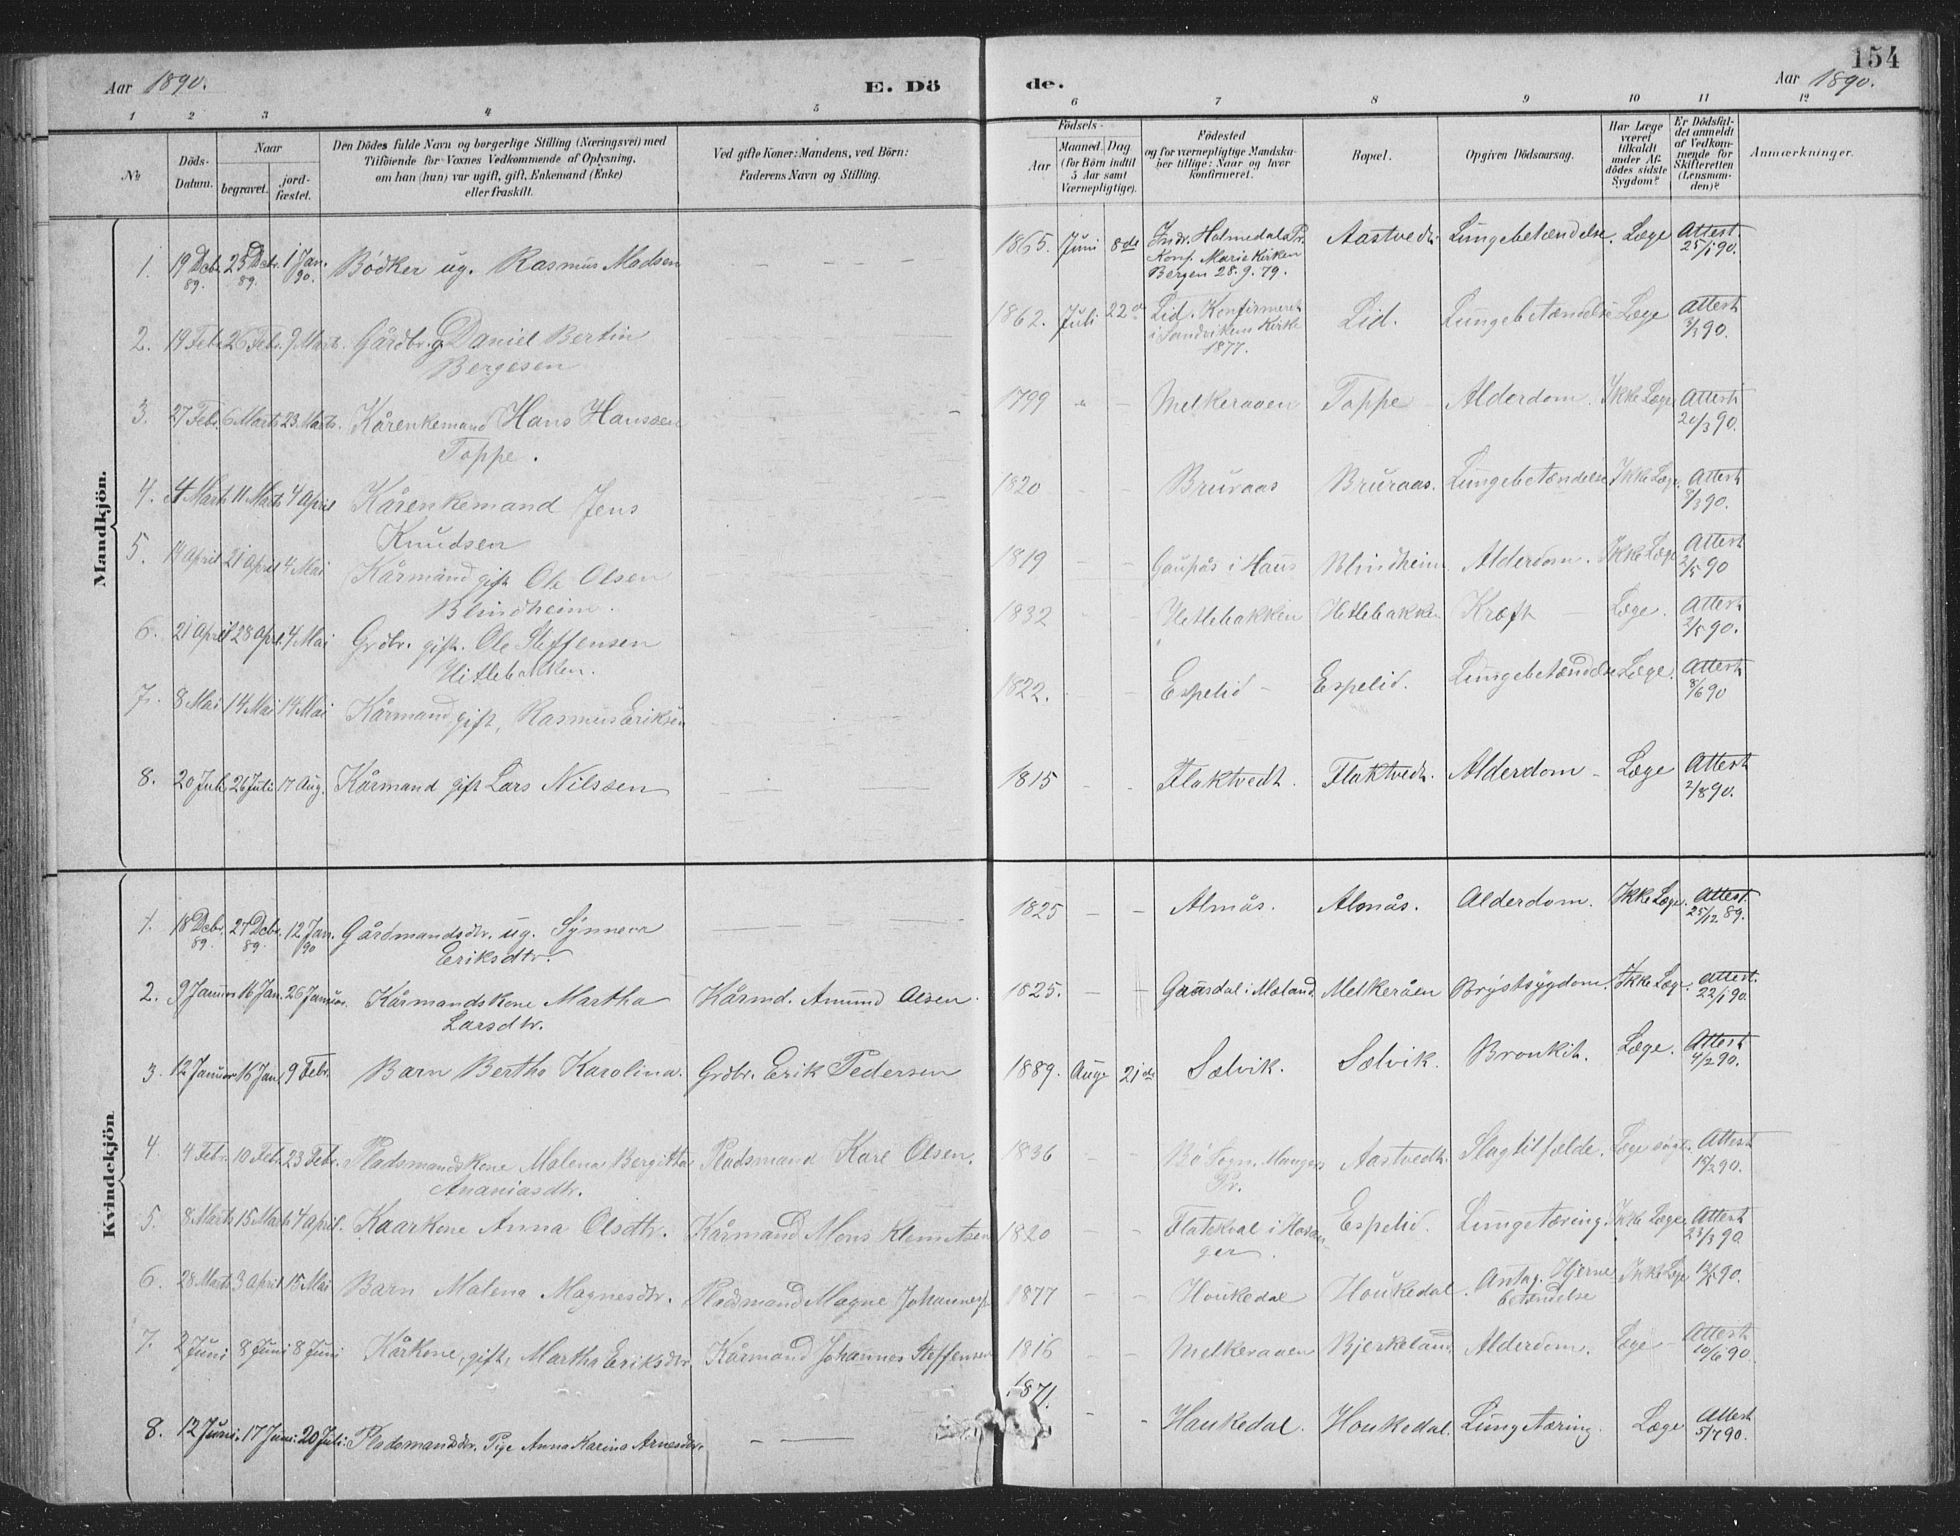 154
Aar 1890. E. Dö de. Aar 1890.
1 2 3 4 5 6 7 8 9 10 11 12
№
Döds-Datum.
Naar
begravet.
jord-fæstet.
Den Dödes fulde Navn og borgerlige Stilling (Næringsvei) med
Tilföiende for Voxnes Vedkommende af Oplysning,
om han (hun) var ugift, gift, Enkemand (Enke)
eller fraskilt.
Ved gifte Koner: Mandens, ved Börn:
Faderens Navn og Stilling.
Födsels-
Aar
Maaned.
(for Börn indtil
5 Aar samt
Værnepligtige).
Dag
Födested
og for værnepligtige Mandska-
ber tillige: Naar og hvor
konfirmeret.
Bopæl.
Opgiven Dödsaarsag.
Har Læge
været
tilkaldt
under Af-
dödes sidste
Sygdom?
Er Dödsfal-
det anmeldt
af Vedkom-
mende for
Skifteretten
(Lensman-
den)?
Anmærkninger.
Mandkjön.
1. 19 Dcbr. 89. 25 Dcbr. 89. 1 Jan. 90. Bödker ug. Rasmus Madsen — — — 1865. Juni 8de Indr. Holmedals Pr.
Konf. Mariekirken
Bergen 28.9.79. Aastvedt. Lungebetændelse. Læge Attest 25/1 90.
2. 19 Febr. 26 Febr. 9 Marts. Gårdbr. g Daniel Bertin
Bergesen 1862. Juli 22de Lid. Konfirmeret
i Sandvikens Kirke
1877. Lid. Lungebetændelse Læge Attest 3/3 90.
3. 27 Febr. 6 Marts 23 Marts. Kårenkemand Hans Hanssen
Toppe. 1799 " — Melkeraaen Toppe Alderdom. Ikke Læge Attest 20/3 90.
4. 4 Marts 11 Marts 4 April Kårenkemand Jens
Knudsen 1820 — — Bruraas Bruraas. Lungebetændelse Ikke Læge. Attest 8/3 90.
5. 14 April 21 April 4 Mai Kårmand gift Ole Olsen
Blindheim. 1819 — — Gaupås i Haus Blindheim Alderdom. Ikke Læge Attest 2/5 90
6. 21 April 28 April 4 Mai Grdbr. gift. Ole Steffensen
Hitlebakken. 1832 — — Hetlebakken Hetlebakken Kræft — Læge. Attest 2/5 90.
7. 8 Mai 14 Mai 14 Mai Kårmand gift, Rasmus Eriksen 1822. — — Espelid — Espelid. Lungebetændelse Læge. Attest 8/6 90
8. 20 Juli 26 Juli 17 Aug. Kårmand gift Lars Nilssen — — — 1815 — — Flaktvedt. Flaktvedt. Alderdom — Læge Attest 2/8 90.
Kvindekjön
1. 18 Dcbr. 89. 27 Dcbr. 89. 12 Jan. 90 Gårdmandsdtr. ug. Synneva
Eriksdtr. 1825 — — Almås. Almås. Alderdom. Ikke Læge. Attest 25/12 89.
2. 9 Januar 16 Jan. 26 Januar. Kårmandskone Martha
Larsdtr. Kårmd. Amund Olsen. 1825. — — Gaasdal i Mæland Melkeråen Brystsygdom. Ikke Læge. Attest 22/1 90.
3. 12 Januar 16 Jan 9 Febr. Barn Bertha Karolina. Grdbr. Erik Pedersen 1889. Aug. 21de Sælvik. Sælvik. Bronkit. Læge. Attest 4/2 90.
4. 4 Febr. 10 Feb. 23 Febr. Pladsmandskone Malena Bergitha
Ananiasdtr. Pladsmand Karl Olsen. 1836 Bö Sogn. Manger
Pr. Aastvedt. Slagtilfælde. Læge sögt. Attest 15/2 90.
5. 8 Marts 15 Marts 4 April. Kaarkone Anna Olsdtr. Kårmand Mons Klemetsen 1820 — — Flatekval i Havan-
ger. Espelid. Lungetæring. Ikke Læge. Attest 23/3 90.
6. 28 Marts 3 April 15 Mai Barn Malena Magnesdtr. Pladsmand Magne Johannes 1877 — — Houkedal Houkedal. Antag. Hjerne
betændelse Ikke Læge 90.
7. 2 Juni 8 Juni 8 Juni Kårkone, gift, Martha Eriksdtr. Kårmand Johannes Steffensen 1816 — — Melkeraaen Bjerkeland Alderdom. Læge — Attest 10/6 90.
8. 12 Juni. 17 Juni. 20 Juli. Pladsmandsdtr. Pige Anna Karina Arnesdtr. — — 1871. — — Haukedal. Houkedal. Lungetæring. Læge Attest 5/7 90.